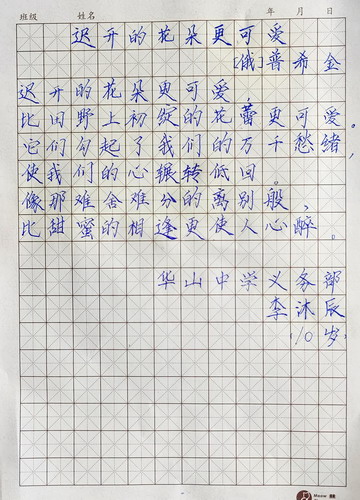 班级 姓名 年 月 日
迟开的花朵更可爱
[俄]普希金
迟开的花朵更可爱,
比田野上初绽的花蕾更可爱。
它们勾起了我们的万千愁绪,
使我们的心辗转低回。
像那难舍难分的离别般,
比甜蜜的相逢更使人心醉。
华山中学义务部
李沐辰
10岁